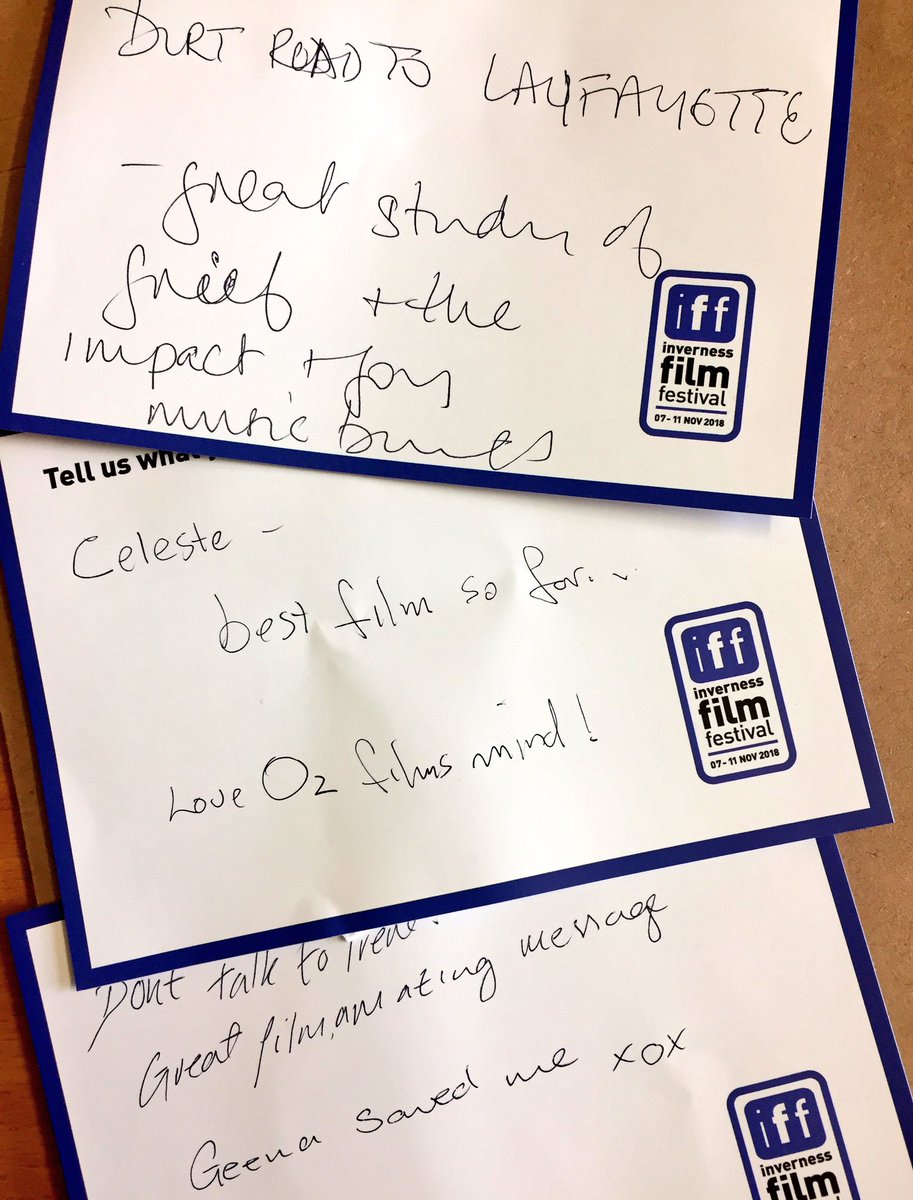 DIRT ROAD TO LAYFAYETTE
- great study of
grief + the
impact + joy
music brings
iff
inverness
film
festival
07-11 NOV 2018
Tell us what
Celeste -
best film so far...
Love Oz films mind!
iff
inverness
film
festival
07-11 NOV 2018
Dont talk to Irene.
Great film, amazing message
Geena saved me xox
iff
inverness
film